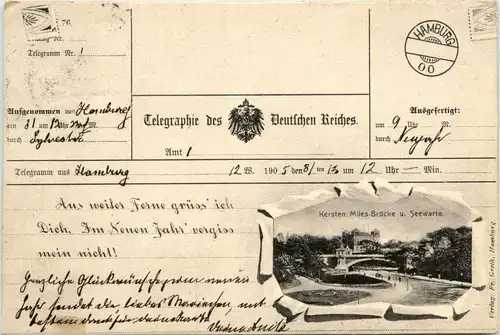 76.
Telegramm Nr. 1
HAMBURG
00
Aufgenommen von Hamburg
den 31 um 12 Uhr M.
durch Sylvester
Telegraphie des Deutschen Reiches.
Amt 1
Ausgefertigt:
um 9 Uhr M.
durch Neujahr
Telegramm aus Hamburg 12 W. 190 5 den 31/ten 12 um 12 Uhr — Min.
Aus weiter Ferne grüss' ich
Dich, Im Neuen Jahr vergiss
mein nicht!
Kersten Miles-Brücke u. Seewarte.
Herzliche Glückwünsche zum neuen
Jahr sendet die liebes Mariechen, mit
besten
Verlag: Fr. Grosh, Hamburg